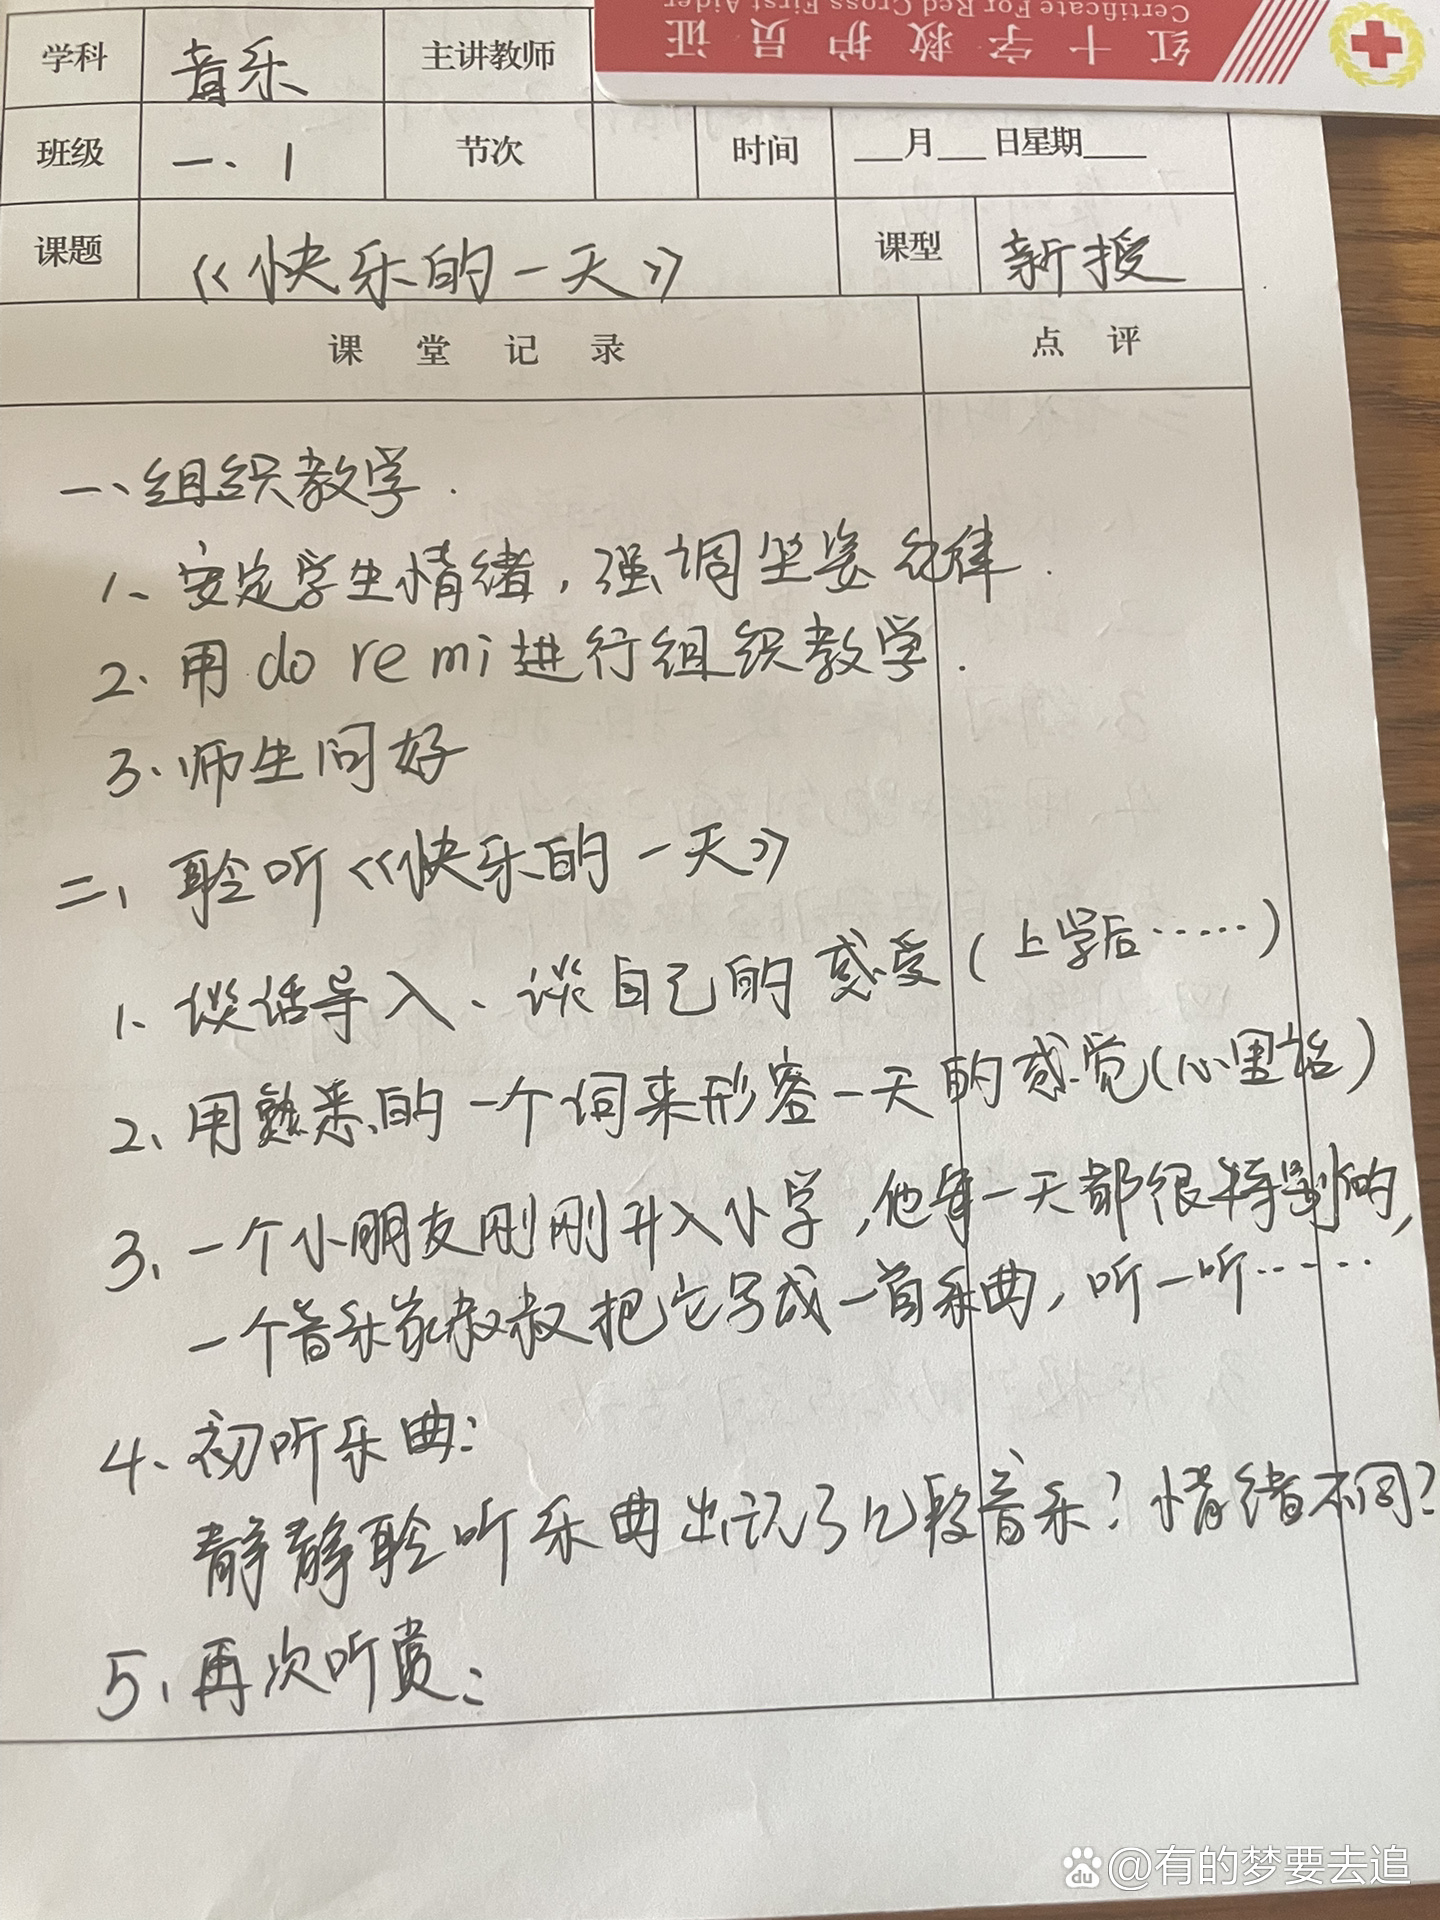 Certificate For Red Cross First Aider
红十字救护员证
学科 音乐 主讲教师
班级 一、1 节次 时间 __月__日星期__
课题 《快乐的一天》 课型 新授
课堂记录 点评
一、组织教学.
1、安定学生情绪,强调坐姿纪律.
2.用do re mi进行组织教学.
3.师生问好
二、聆听《快乐的一天》
1、谈话导入、谈自己的感受(上学后……)
2、用熟悉的一个词来形容一天的感觉(心里话)
3、一个小朋友刚刚升入小学,他每一天都很特别的,
一个音乐家叔叔把它写成一首乐曲,听一听……
4、初听乐曲:
静静聆听乐曲出现了几段音乐?情绪不同?
5、再次听赏:
du @有的梦要去追